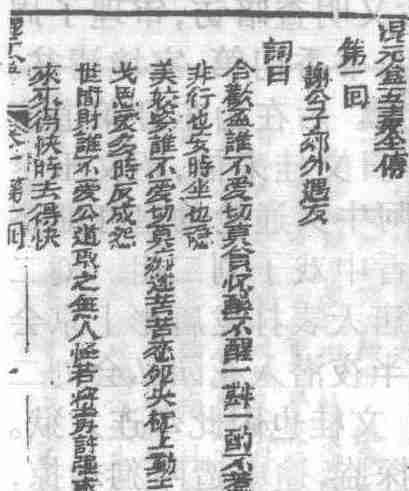 混元盒五毒全傳
第一回
謝公子郊外遇友
詞曰
合歡盃誰不愛切莫貪杯醉不醒一斟一酌不
非行也安時坐也穩
美妙姿誰不愛切莫癡迷苦苦戀鴛央枕上動土
戈恩愛多時反成怨
世間財誰不愛公道取之無人怪若將
來不得快時去得快
混元盒 卷一 第一回